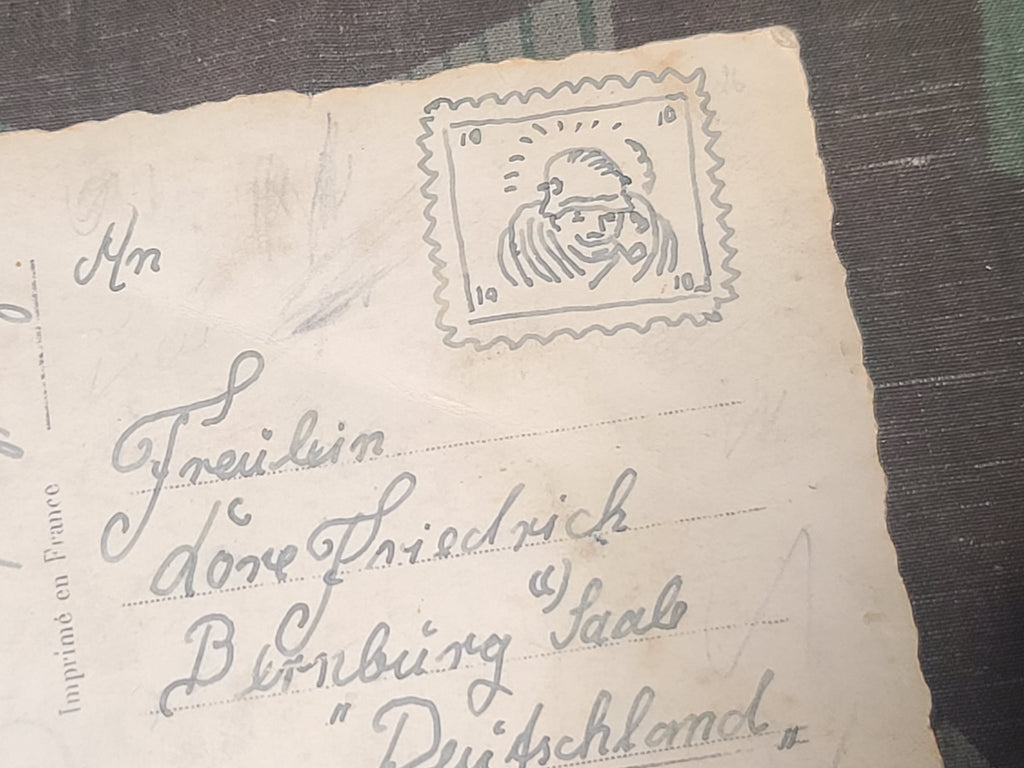 10 10
10 10
An
Fräulein
Lore Friedrich
Bernburg a/ Saale
"Deutschland"
Imprimé en France